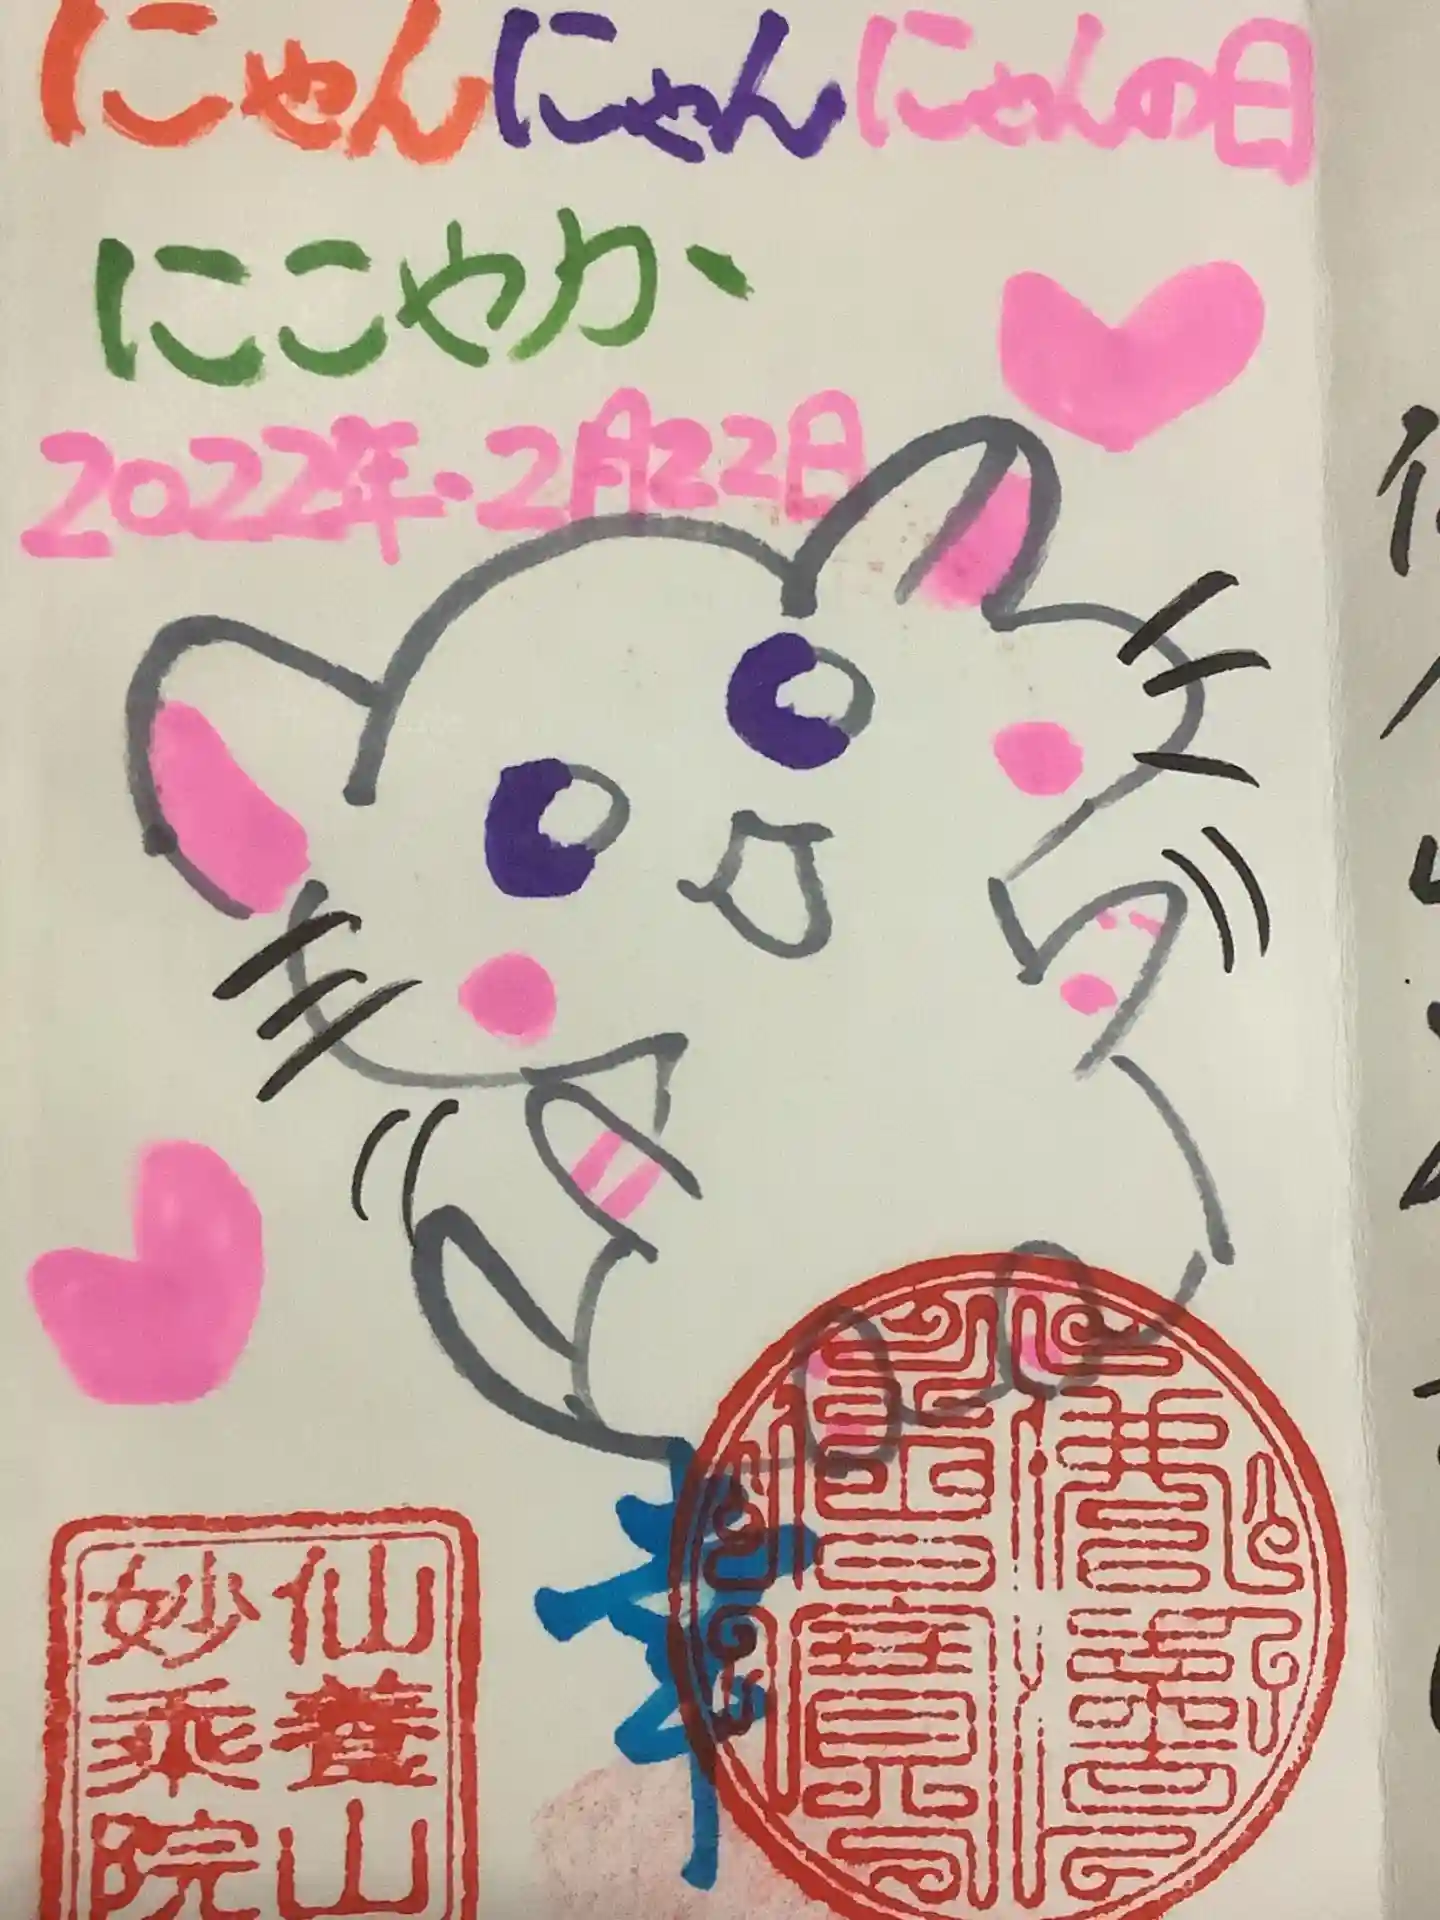 にゃんにゃんにゃんの日
にこやか
2022年・2月22日
幸
仙養山
妙乘院